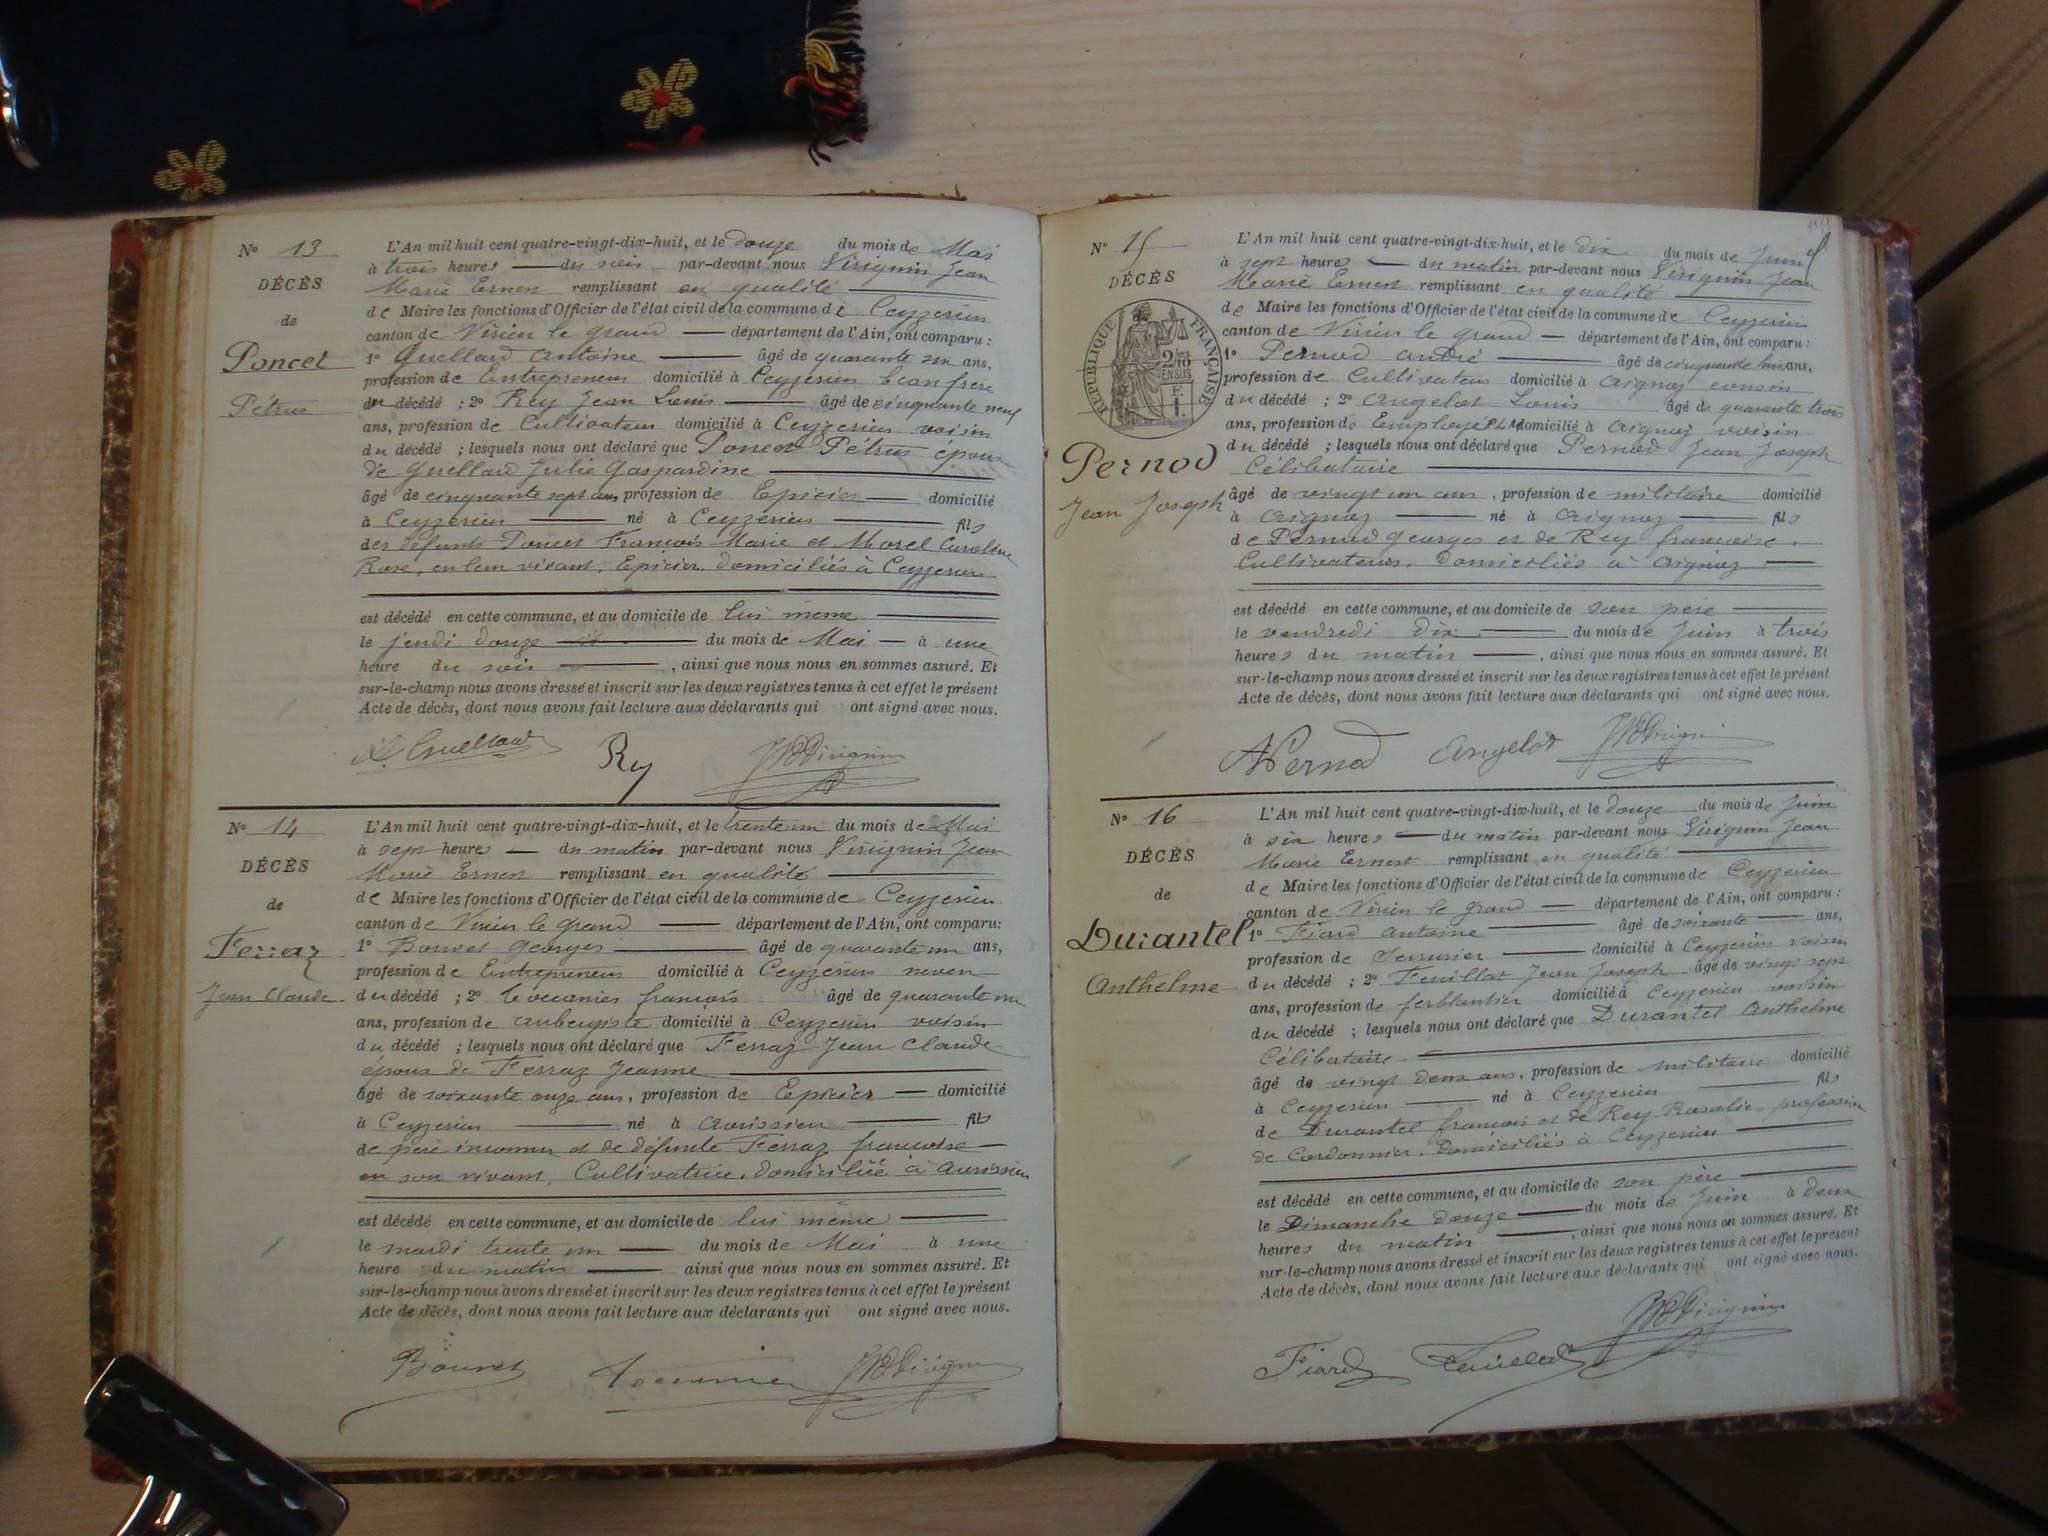 N° 13
DÉCÈS
de
Poncet
Pétrus
L'An mil huit cent quatre-vingt-dix-huit, et le douze du mois de Mai
à trois heures du soir par-devant nous Virignin Jean
Marie Ernest remplissant en qualité
de Maire les fonctions d'Officier de l'état civil de la commune de Ceyzerieu
canton de Virieu le grand département de l'Ain, ont comparu :
1° Guellard Antoine âgé de quarante six ans,
profession de Entrepreneur domicilié à Ceyzerieu beau frère
du décédé ; 2° Rey Jean Louis âgé de cinquante neuf
ans, profession de Cultivateur domicilié à Ceyzerieu voisin
du décédé ; lesquels nous ont déclaré que Poncet Pétrus époux
de Guellard Julie Gaspardine
âgé de cinquante sept ans profession de Epicier domicilié
à Ceyzerieu né à Ceyzerieu fils
des défunts Poncet François Marie et Morel Caroline
Rose, en leur vivant, Epicier, domiciliés à Ceyzerieu
est décédé en cette commune, et au domicile de lui même
le jeudi douze du mois de Mai à une
heure du soir , ainsi que nous nous en sommes assuré. Et
sur-le-champ nous avons dressé et inscrit sur les deux registres tenus à cet effet le présent
Acte de décès, dont nous avons fait lecture aux déclarants qui ont signé avec nous.
Guellard Rey Virignin
N° 14
DÉCÈS
de
Ferraz
Jean Claude
L'An mil huit cent quatre-vingt-dix-huit, et le trente un du mois de Mai
à sept heures du matin par-devant nous Virignin Jean
Marie Ernest remplissant en qualité
de Maire les fonctions d'Officier de l'état civil de la commune de Ceyzerieu
canton de Virieu le grand département de l'Ain, ont comparu:
1° Bouvet Georges âgé de quarante un ans,
profession de Entrepreneur domicilié à Ceyzerieu neveu
du décédé ; 2° françois âgé de quarante un
ans, profession de aubergiste domicilié à Ceyzerieu voisin
du décédé ; lesquels nous ont déclaré que Ferraz Jean Claude
époux de Ferraz Jeanne
âgé de soixante onze ans, profession de Epicier domicilié
à Ceyzerieu né à Avrissieu fils
de père inconnu et de défunte Ferraz françoise
en son vivant, Cultivatrice, domiciliée à Avrissieu
est décédé en cette commune, et au domicile de lui même
le mardi trente un du mois de Mai à une
heure du matin ainsi que nous nous en sommes assuré. Et
sur-le-champ nous avons dressé et inscrit sur les deux registres tenus à cet effet le présent
Acte de décès, dont nous avons fait lecture aux déclarants qui ont signé avec nous.
Bouvet Virignin
N° 15
DÉCÈS
RÉPUBLIQUE FRANÇAISE
Pernod
Jean Joseph
L'An mil huit cent quatre-vingt-dix-huit, et le dix du mois de Juin
à sept heures du matin par-devant nous Virignin Jean
Marie Ernest remplissant en qualité
de Maire les fonctions d'Officier de l'état civil de la commune de Ceyzerieu
canton de Virieu le grand département de l'Ain, ont comparu :
1° Pernod André âgé de cinquante huit ans,
profession de Cultivateur domicilié à Aignoz cousin
du décédé ; 2° Angelot Louis âgé de quarante trois
ans, profession de Employé PLM domicilié à Aignoz voisin
du décédé ; lesquels nous ont déclaré que Pernod Jean Joseph
Célibataire
âgé de vingt un ans , profession de militaire domicilié
à Aignoz né à Aignoz fils
de Pernod Georges et de Rey françoise,
Cultivateurs, domiciliés à Aignoz
est décédé en cette commune, et au domicile de son père
le vendredi dix du mois de Juin à trois
heures du matin , ainsi que nous nous en sommes assuré. Et
sur-le-champ nous avons dressé et inscrit sur les deux registres tenus à cet effet le présent
Acte de décès, dont nous avons fait lecture aux déclarants qui ont signé avec nous.
A Pernod Angelot Virignin
N° 16
DÉCÈS
de
Durantel
Anthelme
L'An mil huit cent quatre-vingt-dix-huit, et le douze du mois de Juin
à six heures du matin par-devant nous Virignin Jean
Marie Ernest remplissant en qualité
de Maire les fonctions d'Officier de l'état civil de la commune de Ceyzerieu
canton de Virieu le grand département de l'Ain, ont comparu :
1° Fiard Antoine âgé de soixante ans,
profession de Serrurier domicilié à Ceyzerieu voisin
du décédé ; 2° Feuillat Jean Joseph âgé de vingt sept
ans, profession de ferblantier domicilié à Ceyzerieu voisin
du décédé ; lesquels nous ont déclaré que Durantel Anthelme
Célibataire
âgé de vingt deux ans, profession de militaire domicilié
à Ceyzerieu né à Ceyzerieu fils
de Durantel françois et de Rey Rosalie, profession
de Cordonnier, Domiciliés à Ceyzerieu
est décédé en cette commune, et au domicile de son père
le Dimanche douze du mois de Juin à deux
heures du matin , ainsi que nous nous en sommes assuré. Et
sur-le-champ nous avons dressé et inscrit sur les deux registres tenus à cet effet le présent
Acte de décès, dont nous avons fait lecture aux déclarants qui ont signé avec nous.
Virignin
Fiard Feuillat